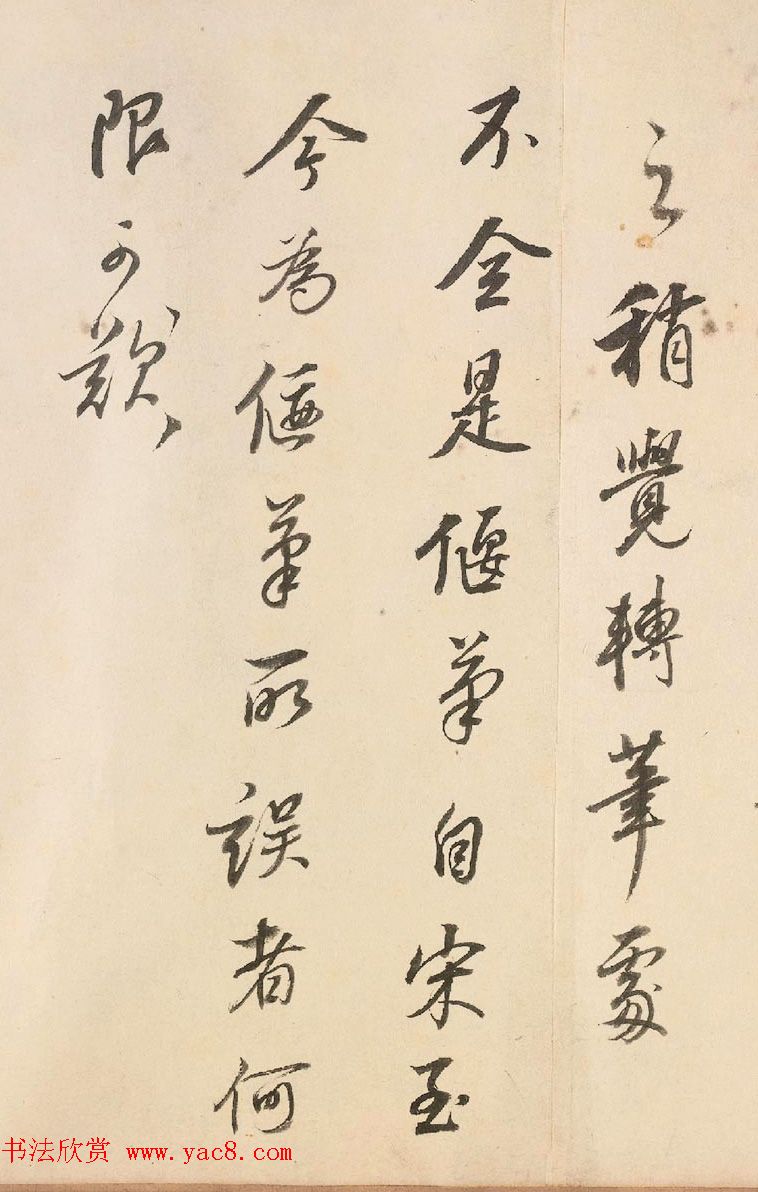 之稍覺轉筆處
不全是偃筆自宋至
今為偃筆所誤者何
限可歎
书法欣赏 www.yac8.com